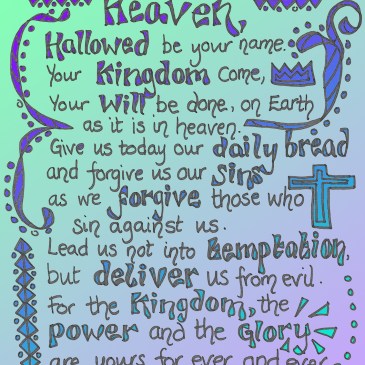 Heaven,
Hallowed be your name.
Your Kingdom Come,
Your Will be done, on Earth
as it is in heaven.
Give us today our daily bread
and forgive us our Sins
as we forgive those who
Sin against us.
Lead us not into temptation,
but deliver us from evil.
For the Kingdom, the
power and the Glory
are yours for ever and ever